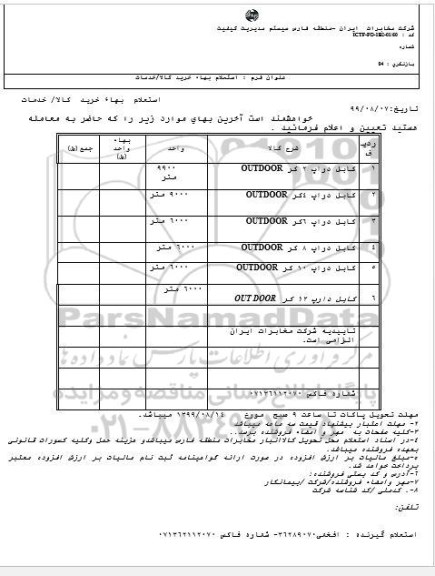 شرکت مخابرات ایران -منطقه فارس سیستم مدیریت کیفیت
شماره
بازنگری : 04
عنوان فرم : استعلام بهاء خرید کالا/خدمات
استعلام بهاء خرید کالا/ خدمات
تاریخ:۹۹/۰۸/۰۷
خواهشمند است آخرین بهای موارد زیر را که حاضر به معامله
هستید تعیین و اعلام فرمائید .
ردیف شرح کالا واحد بهاء واحد (ریال) جمع(ریال)
۱ کابل دراپ ۲ کر OUTDOOR ۹۹۰۰ متر
۲ کابل دراپ ۴کر OUTDOOR ۹۰۰۰ متر
۳ کابل دراپ ۶کر OUTDOOR ۶۰۰۰ متر
۴ کابل دراپ ۸ کر OUTDOOR ۶۰۰۰ متر
۵ کابل دراپ ۱۰ کر OUTDOOR ۶۰۰۰ متر
۶ کابل دارپ ۱۲ کر OUTDOOR ۶۰۰۰ متر
تاییدیه شرکت مخابرات ایران
الزامی است.
شماره فاکس ۰۷۱۳۶۱۱۲۰۷۰
ParsNamadData
مرکز فرآوری اطلاعات پارس نماد داده ها
پایگاه اطلاع رسانی مناقصه و مزایده
مهلت تحویل پاکات تا ساعت ۹ صبح مورخ ۱۳۹۹/۰۸/۱۴ میباشد.
۲- مهلت اعتبار پیشنهاد قیمت سه ماه میباشد
۳-کلیه صفحات به مهر و امضاء فروشنده برسد..
۴-در اسناد استعلام محل تحویل کالاانبار مخابرات منطقه فارس میباشدو هزینه حمل وکلیه کسورات قانونی
بعهده فروشنده میباشد.
۵-مبلغ مالیات بر ارزش افزوده در صورت ارائه گواهینامه ثبت نام مالیات بر ارزش افزوده معتبر
پرداخت خواهد شد.
۶-آدرس و کد پستی فروشنده:
۷-مهر وامضاء فروشنده/شرکت /پیمانکار
۸-. کدملی /کد شناسه شرکت
تلفن:
استعلام گیرنده : افخمی ۳۶۲۸۹۰۷۰- شماره فاکس ۰۷۱۳۶۲۱۱۲۰۷۰